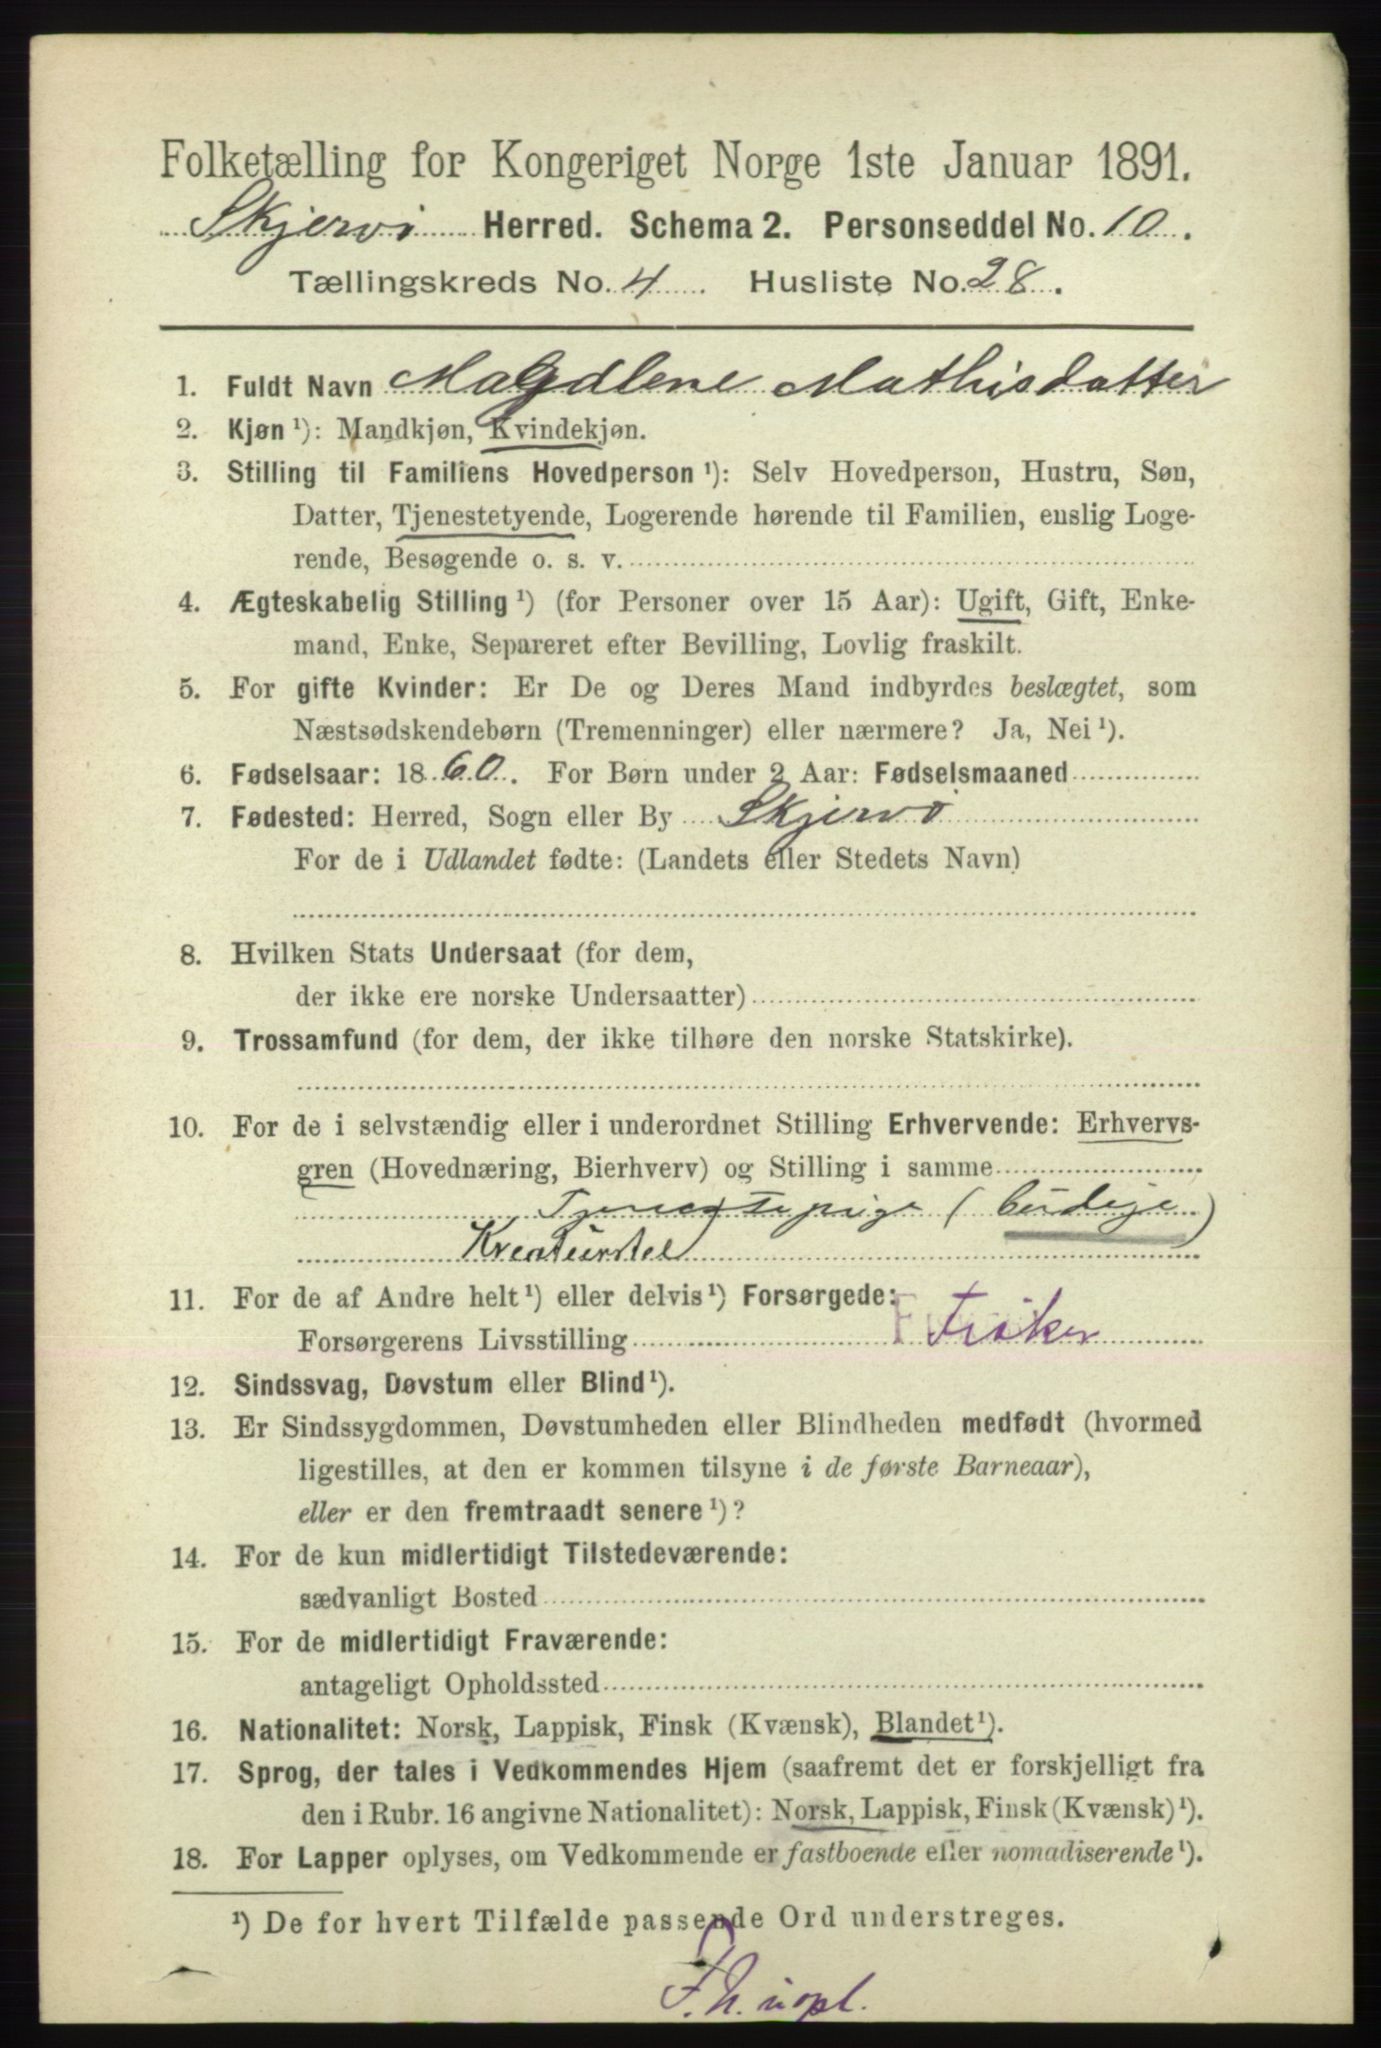 Folketælling for Kongeriget Norge 1ste Januar 1891.
Skjervö Herred. Schema 2. Personseddel No. 10.
Tællingskreds No. 4 Husliste No. 28.
1. Fuldt Navn Magdlene Mathisdatter
2. Kjøn ¹): Mandkjøn, Kvindekjøn.
3. Stilling til Familiens Hovedperson ¹): Selv Hovedperson, Hustru, Søn,
Datter, Tjenestetyende, Logerende hørende til Familien, enslig Loge-
rende, Besøgende o. s. v.
4. Ægteskabelig Stilling ¹) (for Personer over 15 Aar): Ugift, Gift, Enke-
mand, Enke, Separeret efter Bevilling, Lovlig fraskilt.
5. For gifte Kvinder: Er De og Deres Mand indbyrdes beslægtet, som
Næstsødskendebørn (Tremenninger) eller nærmere? Ja, Nei ¹).
6. Fødselsaar: 1860. For Børn under 2 Aar: Fødselsmaaned
7. Fødested: Herred, Sogn eller By Skjervö
For de i Udlandet fødte: (Landets eller Stedets Navn)
8. Hvilken Stats Undersaat (for dem,
der ikke ere norske Undersaatter)
9. Trossamfund (for dem, der ikke tilhøre den norske Statskirke).
10. For de i selvstændig eller i underordnet Stilling Erhvervende: Erhvervs-
gren (Hovednæring, Bierhverv) og Stilling i samme
Tjenestepige (budeje)
Kreaturstel
11. For de af Andre helt ¹) eller delvis ¹) Forsørgede:
Forsørgerens Livsstilling Fisker
12. Sindssvag, Døvstum eller Blind ¹).
13. Er Sindssygdommen, Døvstumheden eller Blindheden medfødt (hvormed
ligestilles, at den er kommen tilsyne i de første Barneaar),
eller er den fremtraadt senere ¹)?
14. For de kun midlertidigt Tilstedeværende:
sædvanligt Bosted
15. For de midlertidigt Fraværende:
antageligt Opholdssted
16. Nationalitet: Norsk, Lappisk, Finsk (Kvænsk), Blandet ¹).
17. Sprog, der tales i Vedkommendes Hjem (saafremt det er forskjelligt fra
den i Rubr. 16 angivne Nationalitet): Norsk, Lappisk, Finsk (Kvænsk) ¹).
18. For Lapper oplyses, om Vedkommende er fastboende eller nomadiserende ¹).
¹) De for hvert Tilfælde passende Ord understreges.